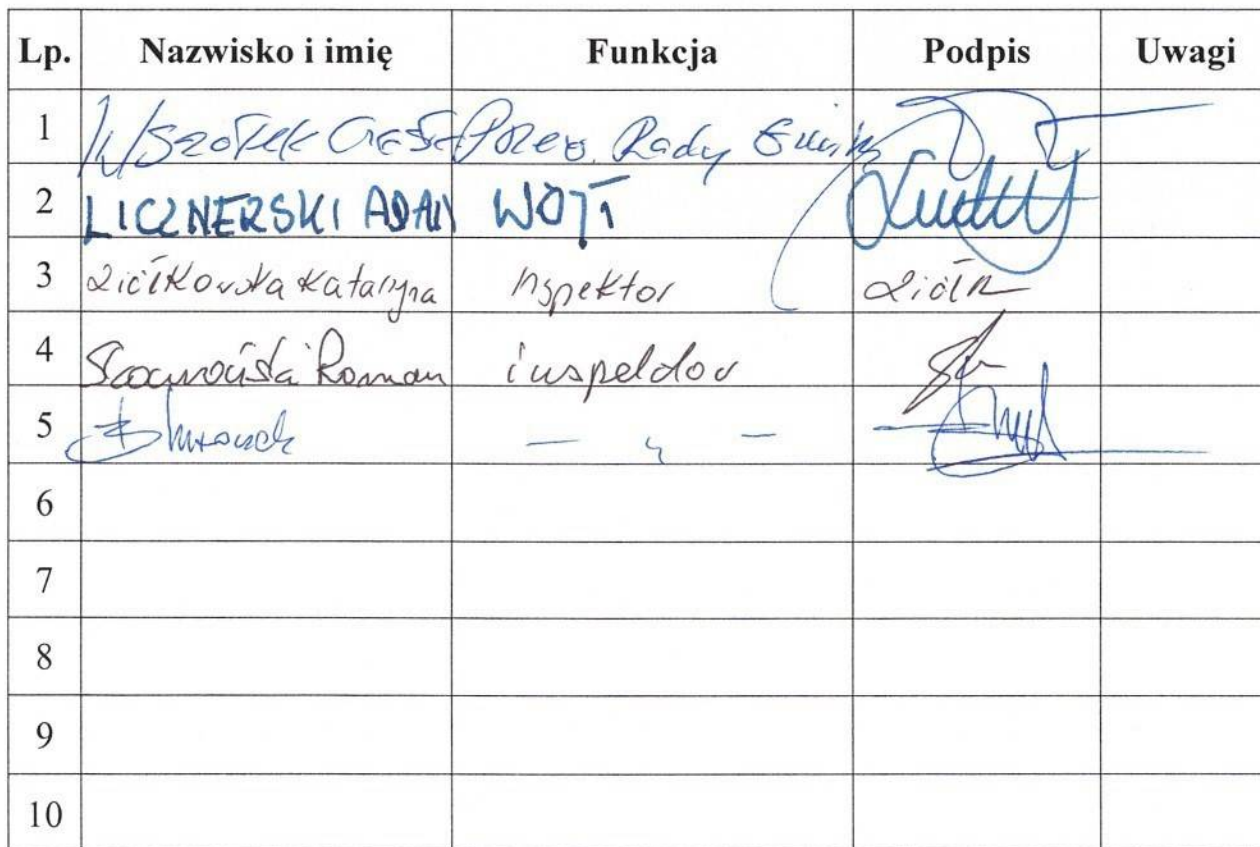 Lp. Nazwisko i imię Funkcja Podpis Uwagi
1 Wszołek Przew. Rady Gminy
2 LICZNERSKI ADAM WÓJT
3 Ziółkowska Katarzyna inspektor
4 Roman inspektor
5 — „ —
6
7
8
9
10